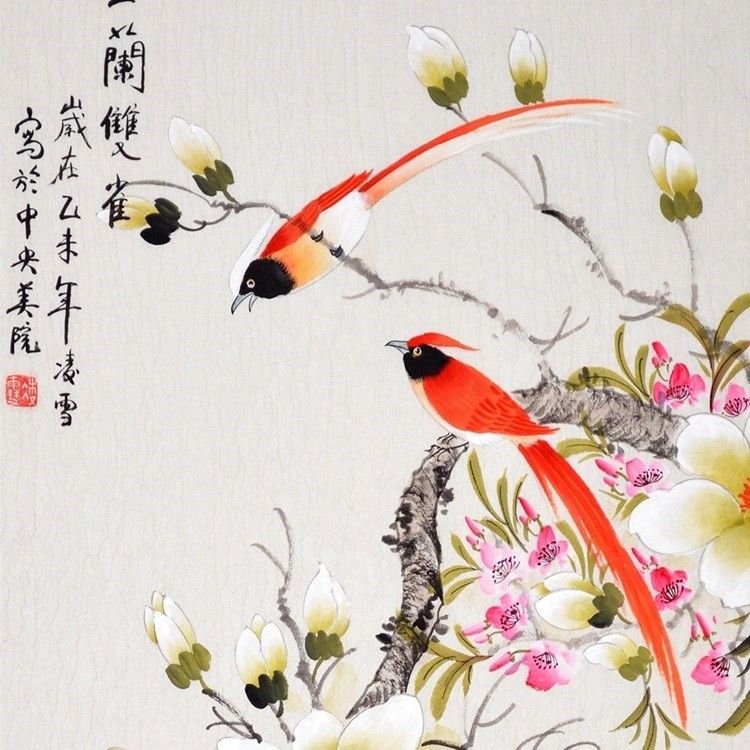 蘭雙雀
歲在乙未年凌雪
寫於中央美院